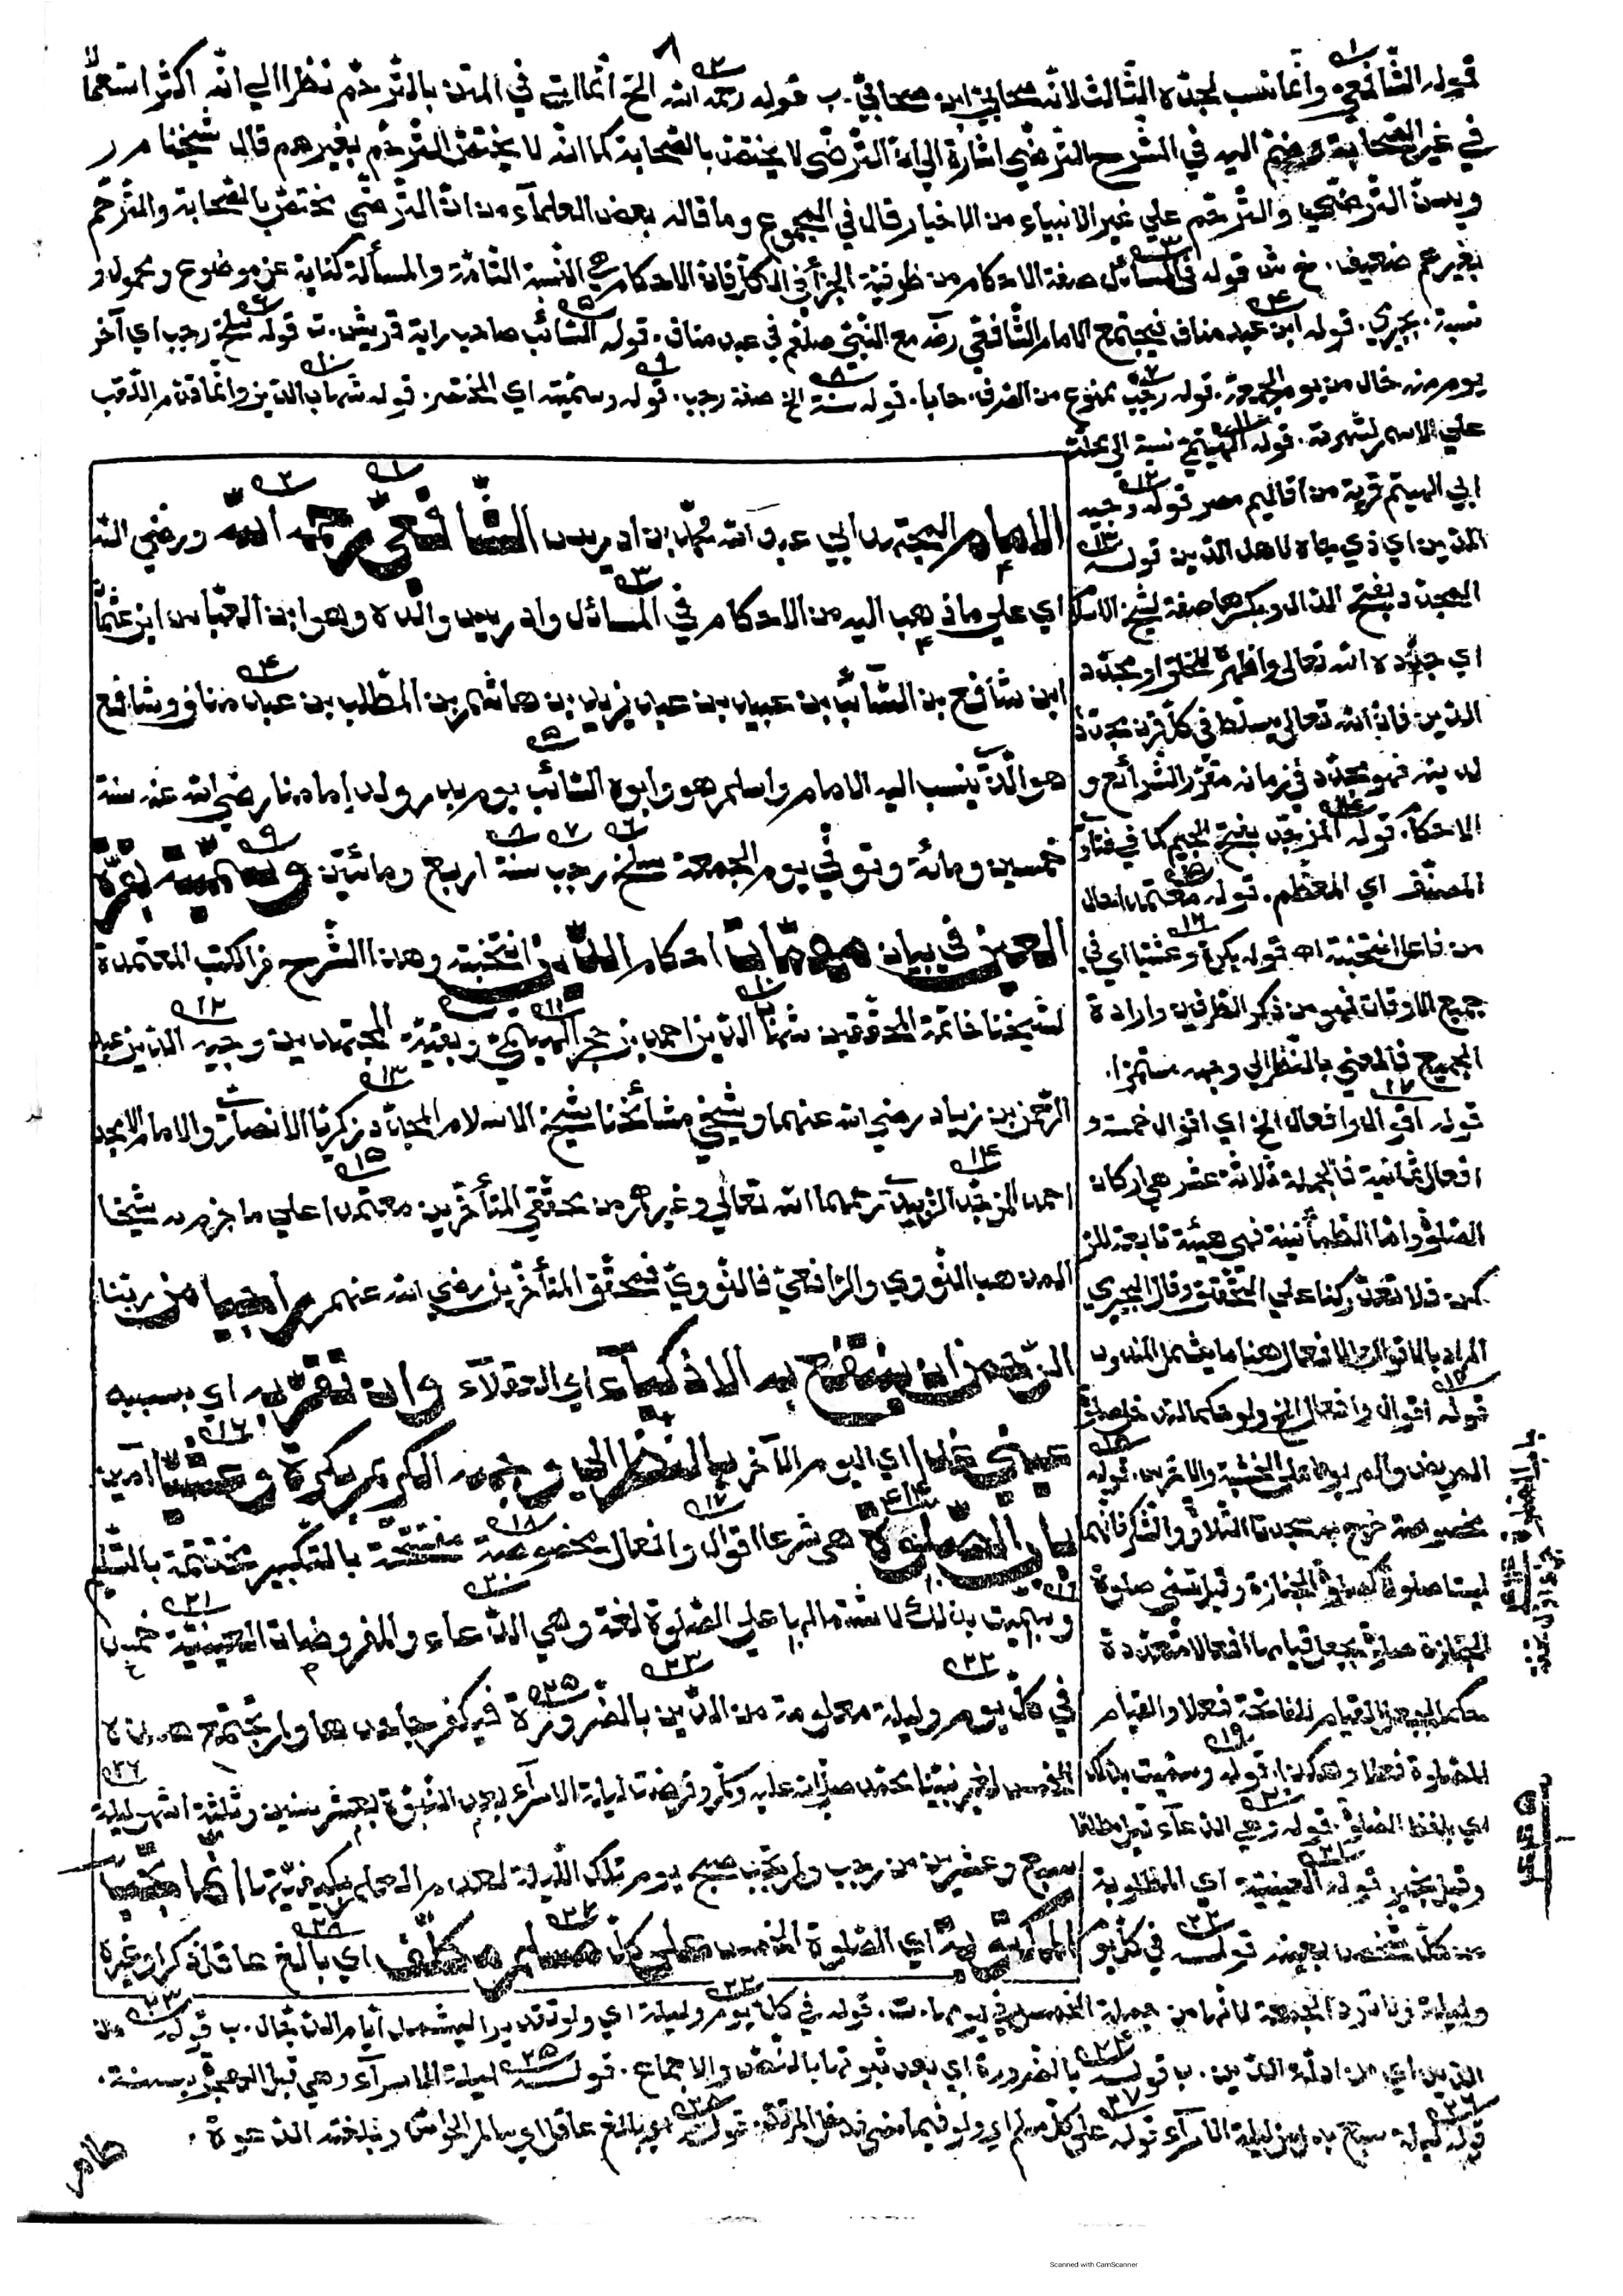 ٨
قوله الشافعي وانما نسب لجده الثالث لانه صحابي ابن صحابي. ب قوله رحمه الله الخ انما اتى في المتن بالترحم نظرا الي انه اكثر استعمالا
في غير الصحابة وضم اليه في الشرح الترضي اشارة الي ان الترضي لا يختص بالصحابة كما انه لا يختص الترحم بغيرهم قال شيخنا م ر
ويسن الترضي والترحم علي غير الانبياء من الاخيار قال في المجموع وما قاله بعض العلمآء من ان الترضي يختص بالصحابة والترحم
بغيرهم ضعيف. قوله في المسائل صفة الاحكام من ظرفية الجزأ في الكل فان الاحكام هي النسبة التامة والمسألة كناية عن موضوع ومحمول و
نسبة. بجيرمي. قوله ابن عبد مناف فيجتمع الامام الشافعي رضه مع النبي صلعم في عبد مناف. قوله السائب صاحب راية قريش. ت قوله سلخ رجب اي آخر
يوم منه خال من يوم الجمعة. قوله رجب ممنوع من الصرف. قوله سنة الخ صفة رجب. قوله وسميته اي المختصر. قوله شهاب الدين وانما قدم اللقب
علي الاسم لشهرته. قوله الهيتمي نسبة الي محلة
ابي الهيتم قرية من اقاليم مصر قوله وجيه
الدين اي ذي جاه لاهل الدين قوله
المجدد بفتح الدال وبكسرها صفة لشيخ الاسلام
اي جدده الله تعالى واظهره للخلق او مجدد
الدين فان الله تعالي يسلط في كل قرن مجددا
لدينه فهو مجدد في زمانه مقرر الشرائع و
الاحكام. قوله المزجد بفتح الجيم كما في فتاوى
المصنف اي المعظم. قوله معتمدا حال
من فاعل انتخبته اه قوله بكرة وعشيا اي في
جميع الاوقات فهو من ذكر الطرفين وارادة
الجميع فالمعني بالنظر الي وجهه مستمرا.
قوله اقوال وافعال الخ اي اقوال خمسة و
افعال ثمانية فالجملة ثلاثة عشر هي اركان
الصلوة واما الطمأنينة فهي هيئة تابعة للر
كن فلا تعد ركنا علي التحقيق وقال البجيرمي
المراد بالاقوال والافعال هنا ما يشمل المندوب
قوله اقوال وافعال الخ ولو حكما لتدخل صلوة
المريض والمربوط علي الخشبة والاخرس. قوله
مخصوصة خرج به سجدتا التلاوة والشكر فانهما
ليستا صلوة كصلوة الجنازة وقيل تسمى صلوة
الجنازة صلوة بجعل قيامها افعالا متعددة
حكما بجعل القيام للفاتحة فعلا والقيام
للصلوة فعلا وهكذا. قوله وسميت بذلك
اي بلفظ الصلوة. قوله وهي الدعآء قيل مطلقا
وقيل بخير قوله العينية اي المطلوبة
من كل شخص بعينه قوله في كل يوم
الامام المجتهد ابي عبد الله محمد بن ادريس الشافعي رحمه الله ورضي الله
اي علي ما ذهب اليه من الاحكام في المسائل وادريس والده وهو ابن العباس ابن عثمان
ابن شافع بن السآئب بن عبيد بن عبد يزيد بن هاشم بن المطلب بن عبد مناف وشافع
هو الذي ينسب اليه الامام واسلم هو وابوه السائب يوم بدر ولد إمامنا رضي الله عنه سنة
خمسين ومائة وتوفي يوم الجمعة سلخ رجب سنة اربع ومائتين وسميته بقرة
العين في بيان مهمات احكام الدين انتخبته وهذا الشرح من الكتب المعتمدة
لشيخنا خاتمة المحققين شهاب الدين احمد بن حجر الهيتمي وبقية المجتهدين وجيه الدين عبد
الرحمن بن زياد رضي الله عنهما وشيخي مشائخنا شيخ الاسلام المجدد زكريا الانصاري والامام الامجد
احمد المزجد الزبيدي رحمهما الله تعالي وغيرهم من محققي المتأخرين معتمدا علي ما جزم به شيخا
المذهب النووي والرافعي فالنووي فمحقق المتأخرين رضي الله عنهم راجيا من ربنا
الرحمن ان ينتفع به الاذكياء اي العقلآء وان تقر به اي بسببه
عيني غدا اي اليوم الآخر بالنظر الي وجهه الكريم بكرة وعشيا آمين
باب الصلوة هي شرعا اقوال وافعال مخصوصة مفتتحة بالتكبير مختتمة بالتسليم
وسميت بذلك لاشتمالها علي الصلوة لغة وهي الدعاء والمفروضات العينية خمس
في كل يوم وليلة معلومة من الدين بالضرورة فيكفر جاحدها ولم تجتمع هذه
الخمس لغير نبينا محمد صلي الله عليه وسلم وفرضت ليلة الاسرآء بعد النبوة بعشر سنين وثلثة اشهر ليلة
سبع وعشرين من رجب ولم تجب صبح يوم تلك الليلة لعدم العلم بكيفيتها انما تجب
المكتوبة اي الصلوة الخمس علي كل مسلم مكلف اي بالغ عاقل ذكر او غيره
وليلة قوله في كل يوم وليلة اي ولو تقديرا ليشمل أيام الدجال. ب قوله من
الدين اي من ادلة الدين. ب قوله بالضرورة اي بعد ثبوتها بالنص والاجماع. قوله ليلة الاسرآء وهي قبل الهجرة بسنة.
قوله ليلة سبع بدل من ليلة الاسرآء قوله علي كل مسلم اي ولو فيما مضى فدخل المرتد. قوله اي بالغ عاقل اي سالم الحواس وبلغته الدعوة.
Scanned with CamScanner